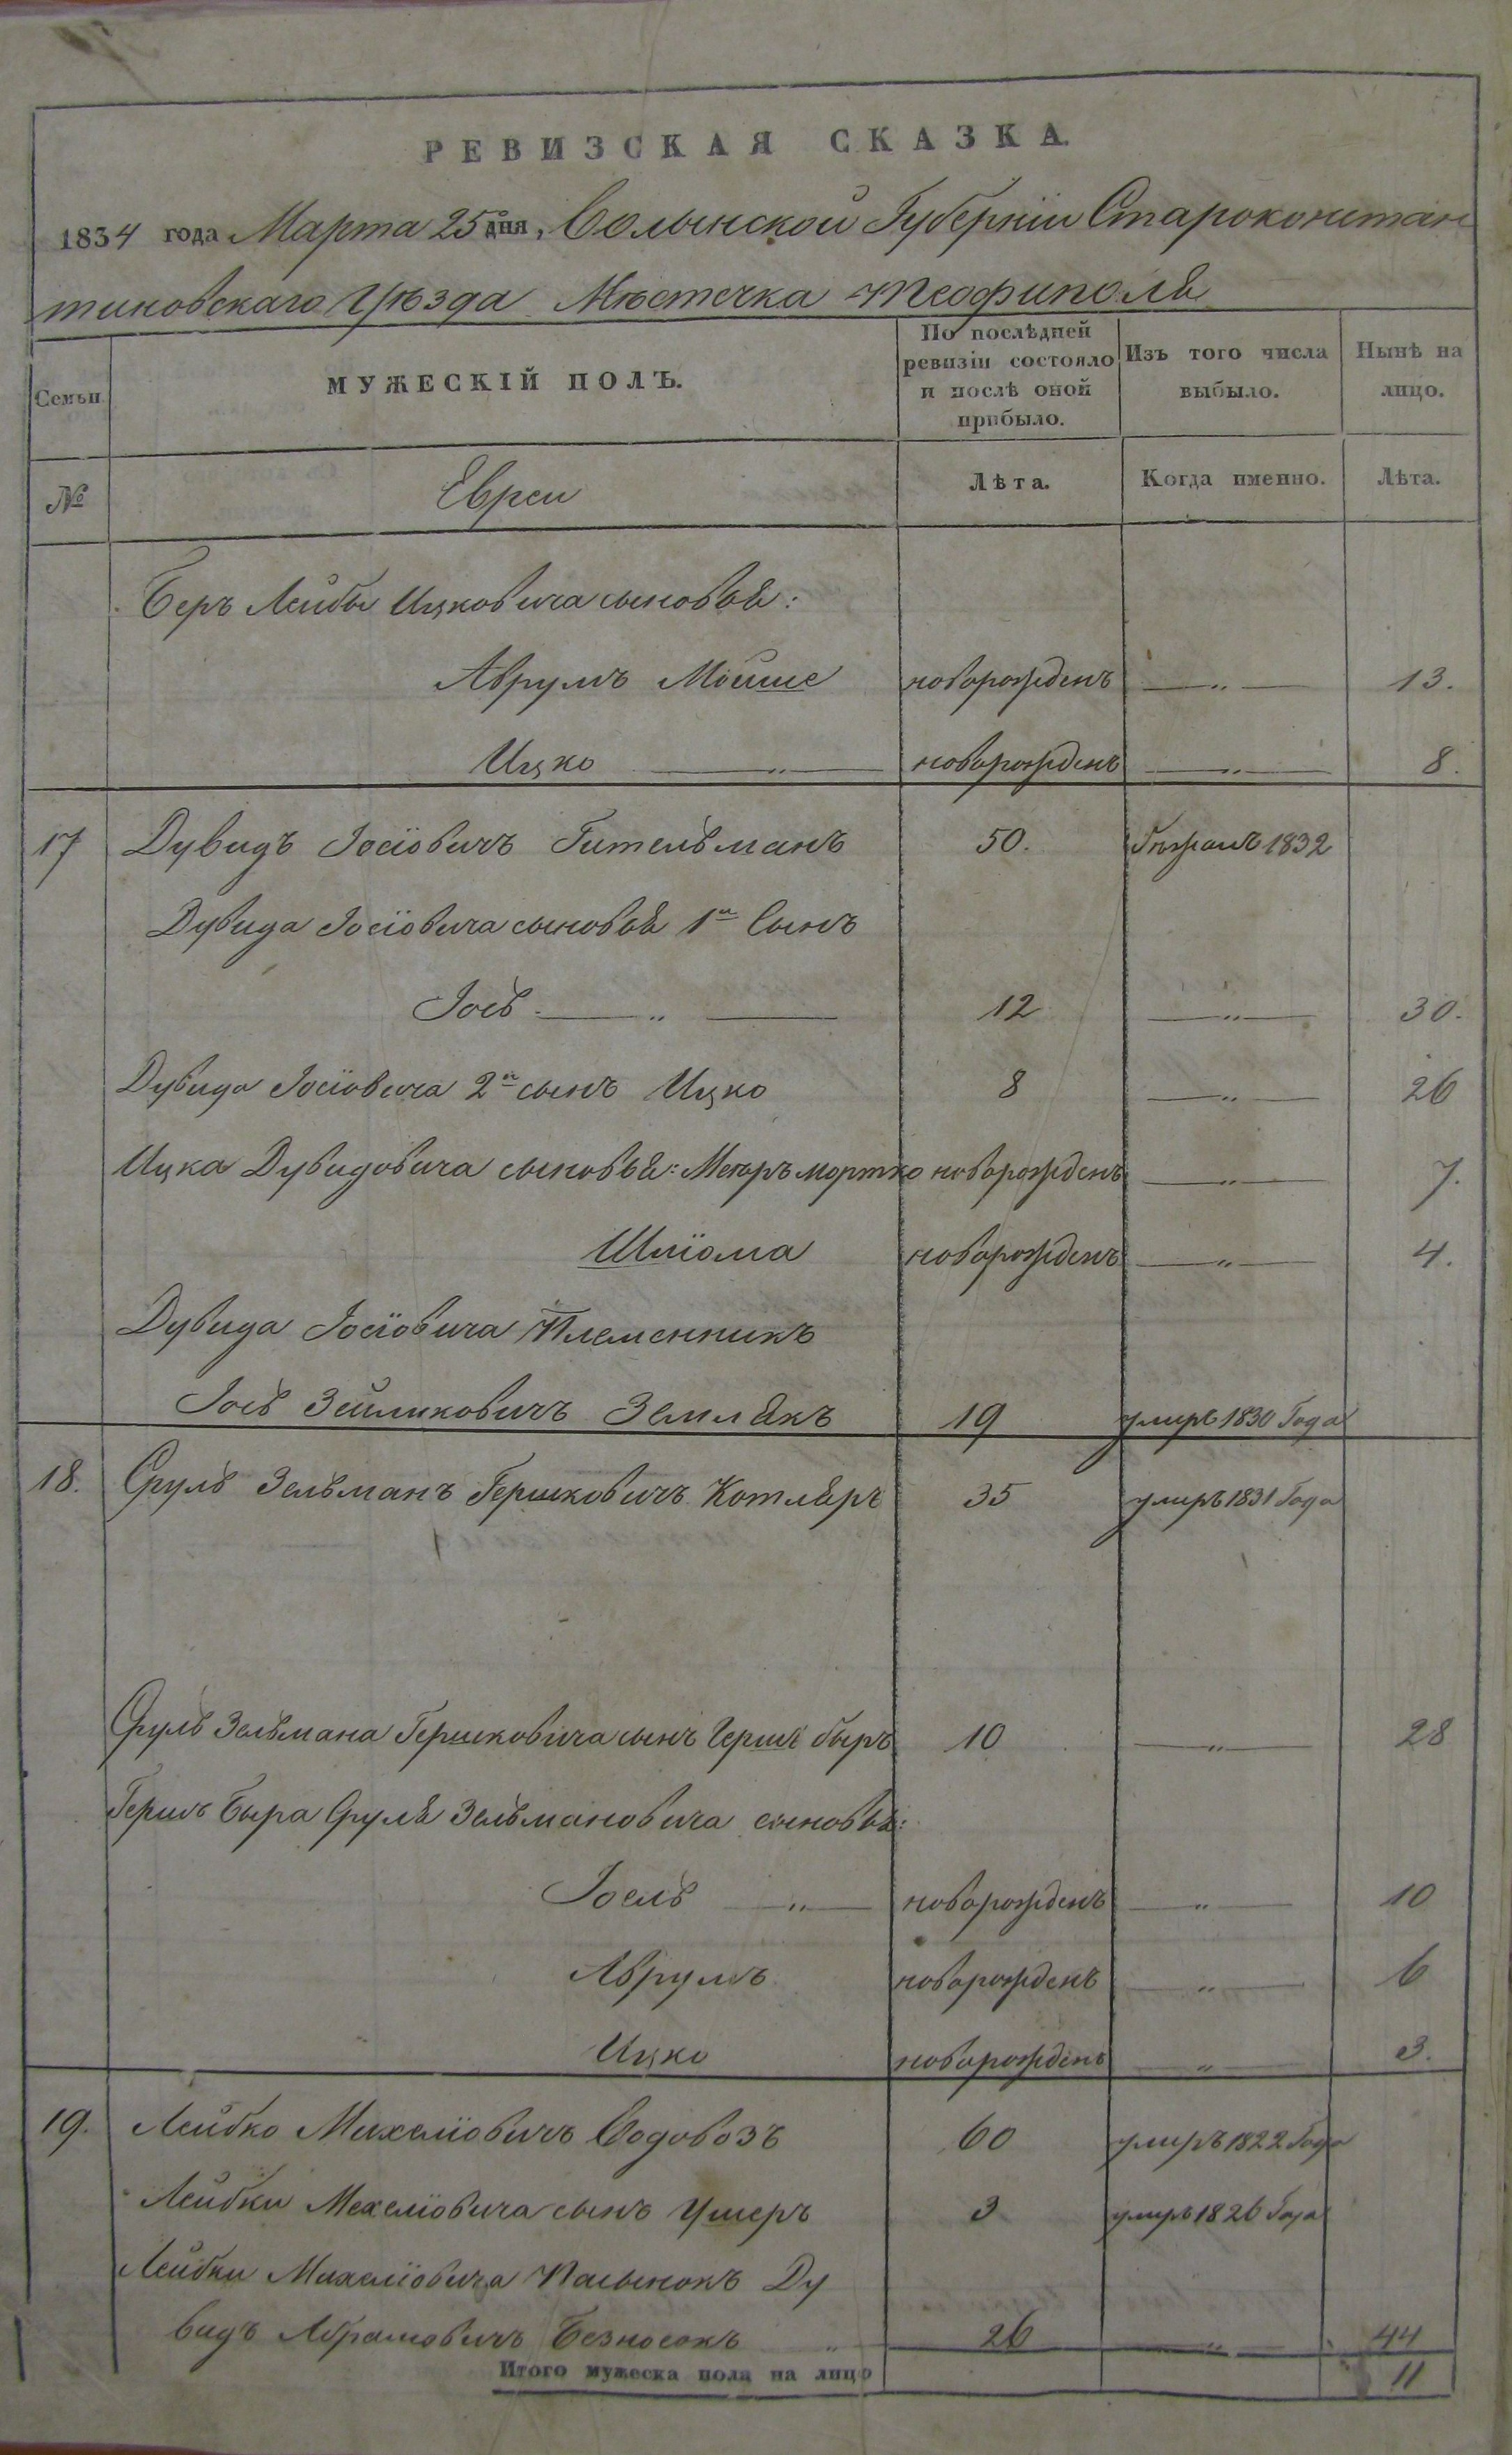 РЕВИЗСКАЯ СКАЗКА.
1834 года Марта 25 дня, Волынской Губерніи Староконстан
тиновскаго Уѣзда Мѣстечка Теофиполя
Семьи
МУЖЕСКІЙ ПОЛЪ.
По послѣдней ревизіи состояло и послѣ оной прибыло.
Изъ того числа выбыло.
Нынѣ на лицо.
№
Евреи
Лѣта.
Когда именно.
Лѣта.
Беръ Лейбы Ицковича сыновья:
Аврумъ Мойше новорожденъ — „ — 13.
Ицко — „ — новорожденъ — „ — 8.
17 Дувидъ Іосіовичъ Гительманъ 50. бѣжалъ 1832
Дувида Іосіовича сыновья 1й Сынъ
Іось — „ — 12 — „ — 30.
Дувида Іосіовича 2й сынъ Ицко 8 — „ — 26
Ицка Дувидовича сыновья: Меюръ мортко новорожденъ — „ — 7.
Шліома новорожденъ — „ — 4.
Дувида Іосіовича Племенникъ
Іось Зейликовичъ Землякъ 19 умиръ 1830 Года
18. Сруль Зельманъ Гершковичъ Котляръ 35 умиръ 1831 Года
Сруль Зельмана Гершковича сынъ Гершъ быръ 10 — „ — 28
Гершъ Быра Сруля Зельмановича сыновья:
Іоель — „ — новорожденъ — „ — 10
Аврумъ новорожденъ — „ — 6
Ицко новорожденъ — „ — 3.
19. Лейбко Михеліовичъ Водовозъ 60 умиръ 1822 Года
Лейбки Мехеліовича сынъ Ушеръ 3 умиръ 1826 Года
Лейбки Михеліовича Пасынокъ Ду
видъ Абрамовичъ Безносокъ „ 26 — „ — 44
Итого мужеска пола на лицо 11